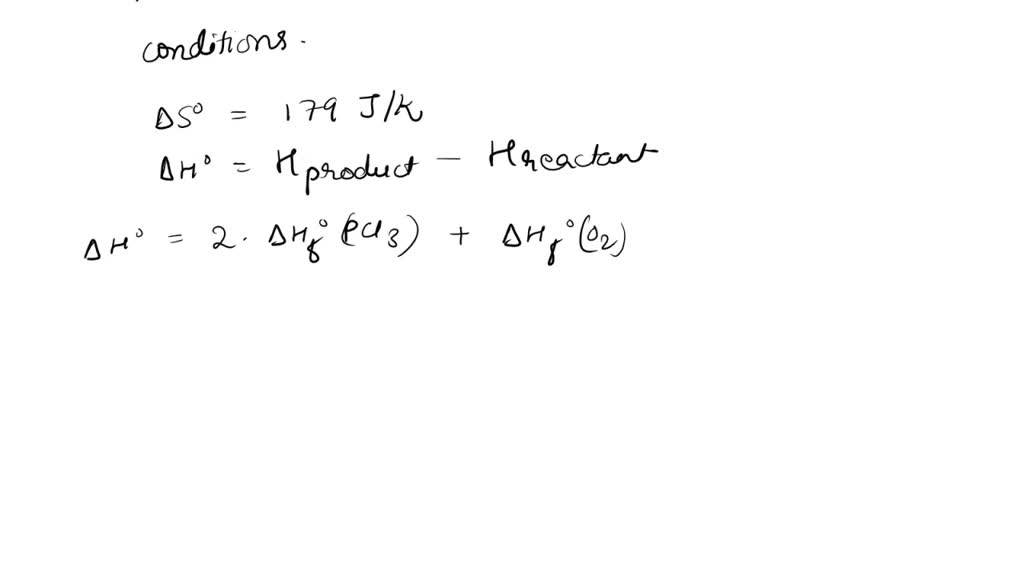 conditions.
ΔS° = 179 J/K
ΔH° = Hproduct - Hreactant
ΔH° = 2. ΔHf° (PCl3) + ΔHf° (O2)